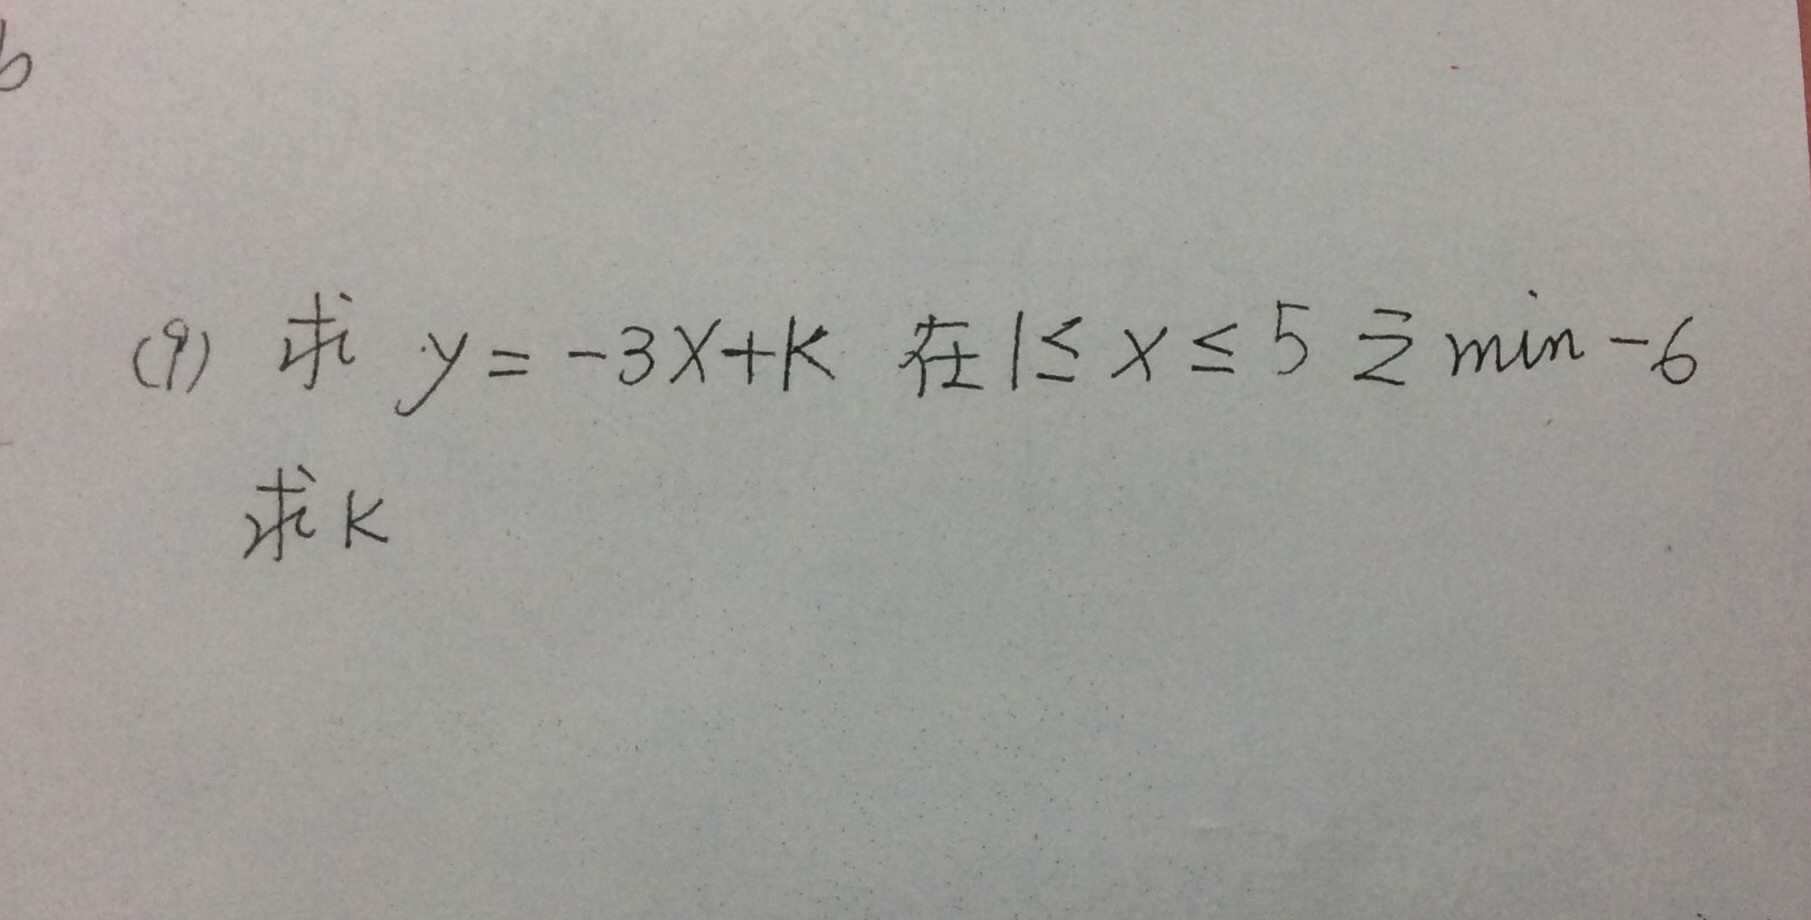 b
(9) 求 y = -3x+k 在 1 ≤ x ≤ 5 之 min -6
求 k